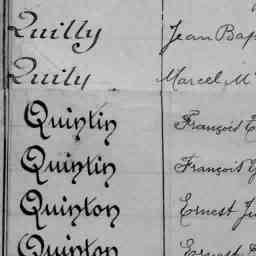 Quilly Jean Bap
Quily Marcel M
Quintin François E
Quintin François
Quinton Ernest Ju
Quinton Ernest